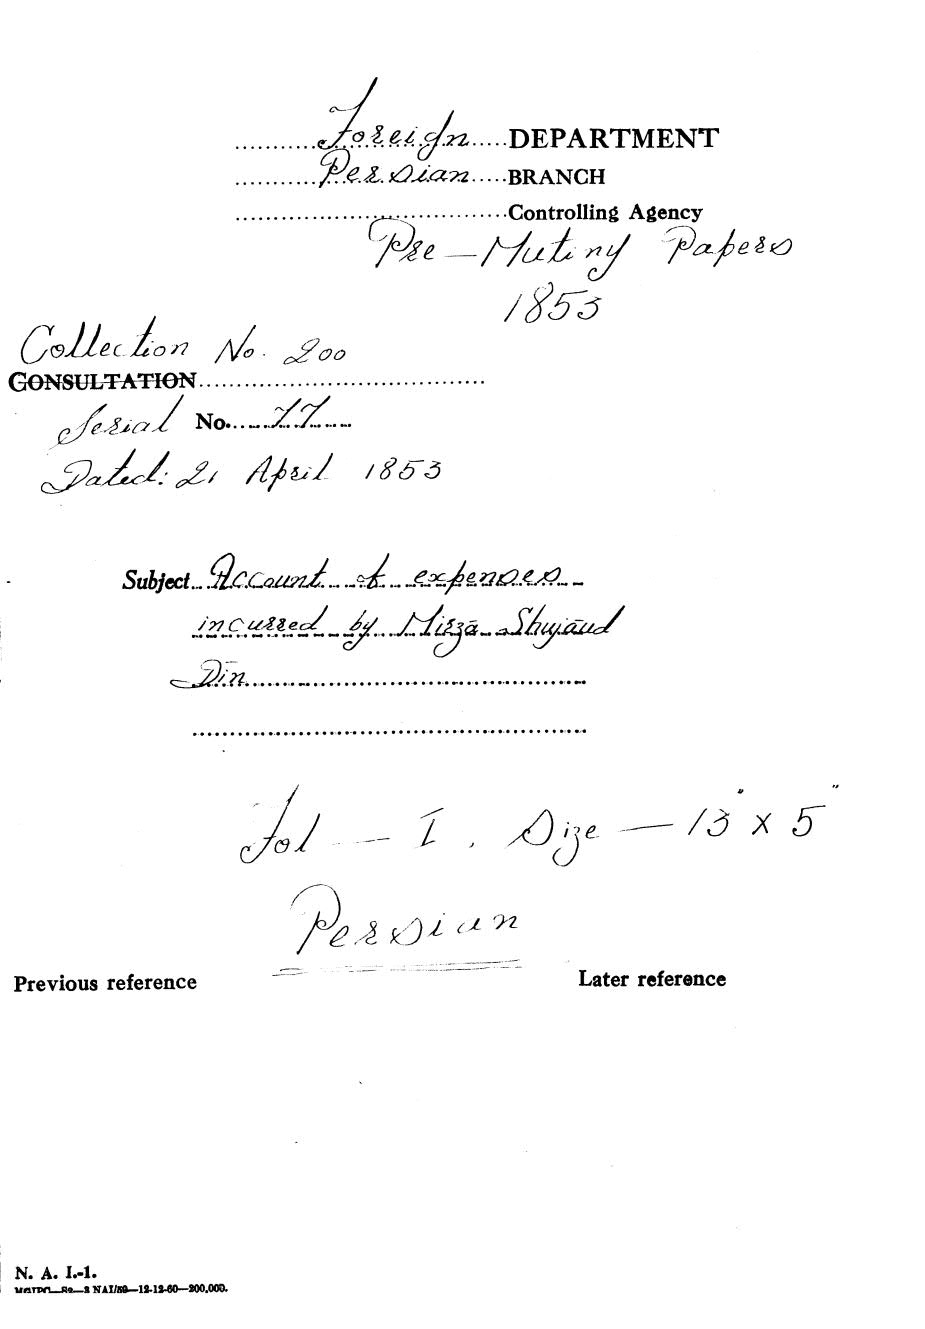 Foreign DEPARTMENT
Persian BRANCH
Controlling Agency
Pre-Mutiny Papers
1853
Collection No. 200
CONSULTATION
Serial No. 77
Dated: 21 April 1853
Subject Account of expenses
incurred by Mirzā Shujāud
Din
Fol - I. Size - 13" x 5"
Persian
Previous reference
Later reference
N. A. I.-1.
NAI/59—12-12-60—200,000.